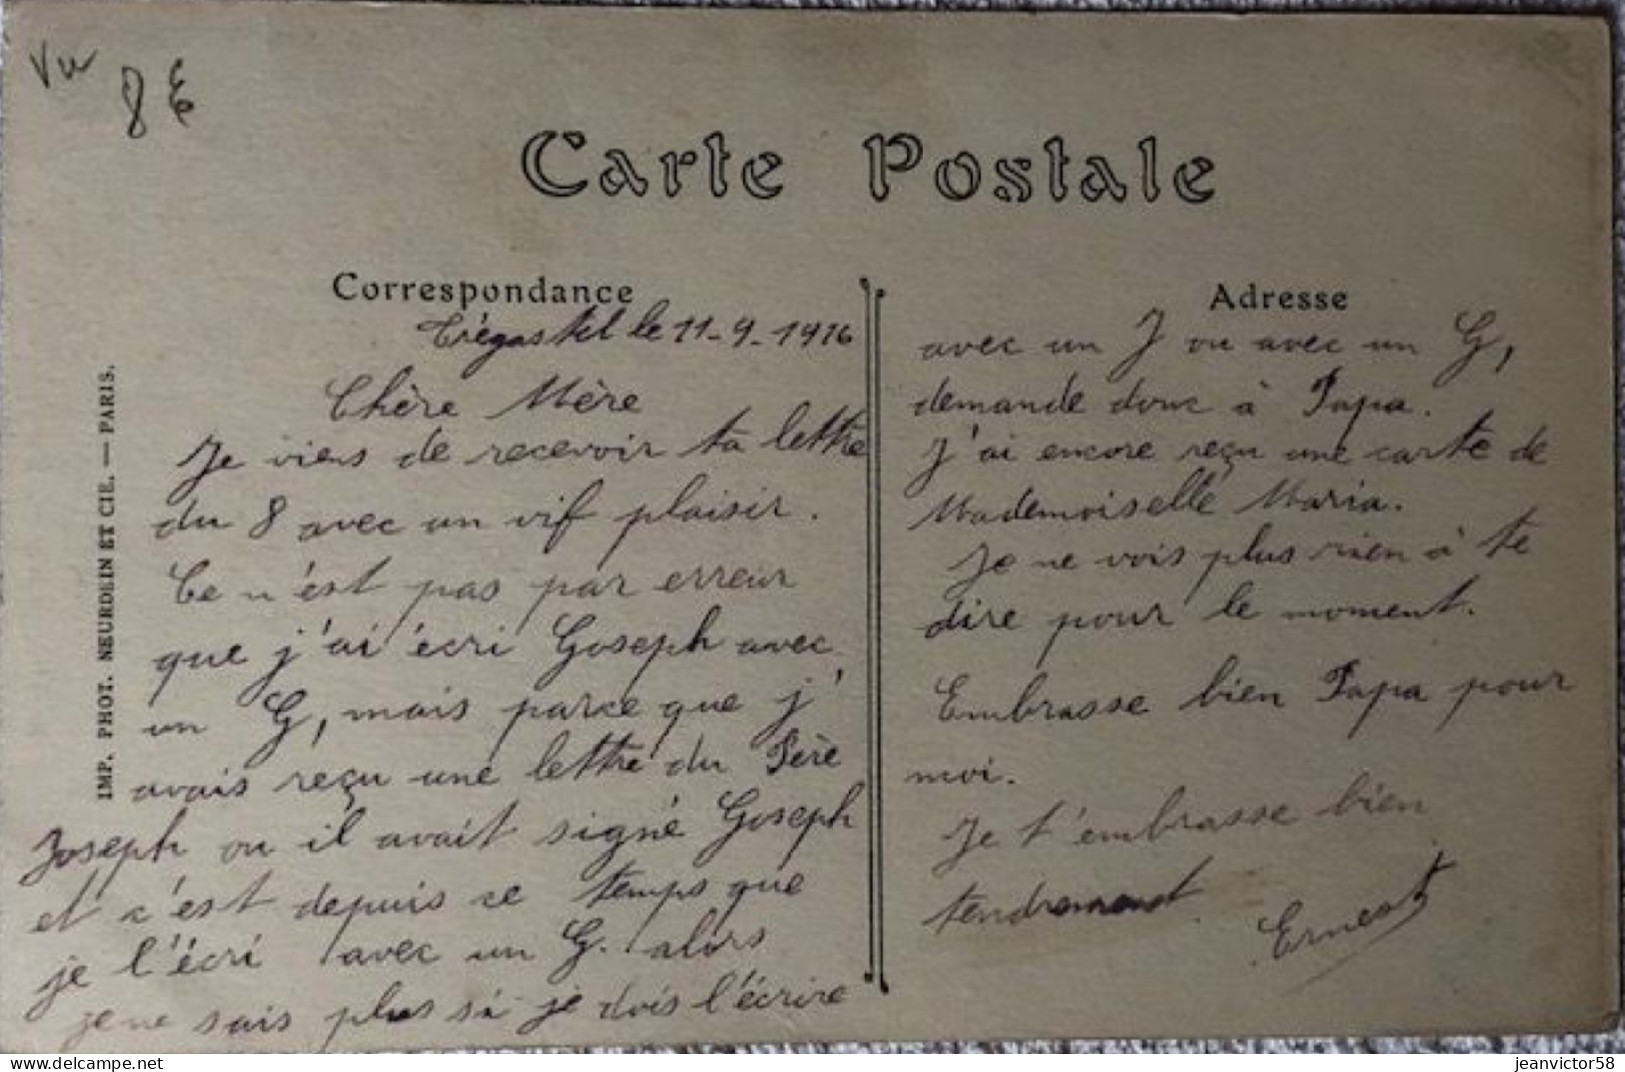 Vu
8 €
Carte Postale
Correspondance
Trégastel le 11-9-1916
Chère Mère
Je viens de recevoir ta lettre
du 8 avec un vif plaisir.
Ce n'est pas par erreur
que j'ai écri Goseph avec
un G, mais parce que j'
avais reçu une lettre du Père
Joseph ou il avait signé Goseph
et c'est depuis ce temps que
je l'écri avec un G. alors
je ne sais plus si je dois l'écrire
Adresse
avec un J ou avec un G,
demande donc à Papa.
J'ai encore reçu une carte de
Mademoiselle Maria.
Je ne vois plus rien à te
dire pour le moment.
Embrasse bien Papa pour
moi.
Je t'embrasse bien
tendrement
Ernest
IMP. PHOT. NEURDEIN ET CIE. — PARIS.
jeanvictor58